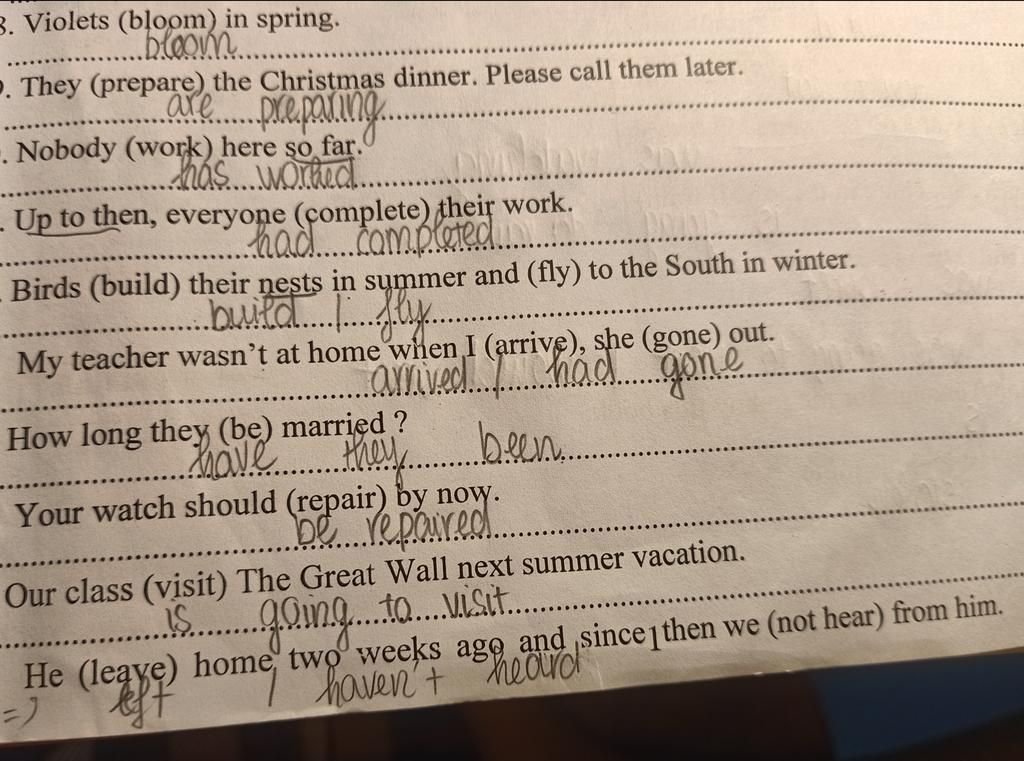 8. Violets (bloom) in spring.
bloom
. They (prepare) the Christmas dinner. Please call them later.
are preparing
. Nobody (work) here so far.
has worked
. Up to then, everyone (complete) their work.
had completed
. Birds (build) their nests in summer and (fly) to the South in winter.
build / fly
My teacher wasn't at home when I (arrive), she (gone) out.
arrived / had gone
How long they (be) married ?
have they been
Your watch should (repair) by now.
be repaired
Our class (visit) The Great Wall next summer vacation.
is going to visit
He (leave) home two weeks ago and since then we (not hear) from him.
=) left / haven't heard